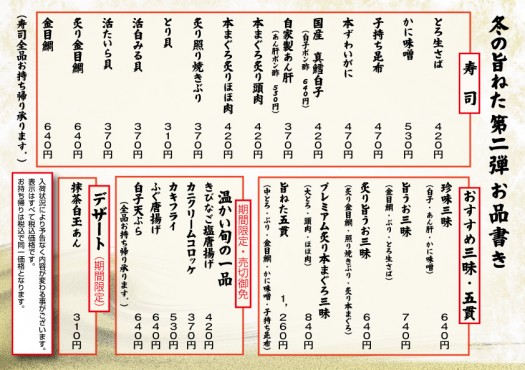 冬の旨ねた 第二弾 お品書き
寿司
とろ生さば 420円
かに味噌 530円
子持ち昆布 470円
本ずわいがに 470円
国産 真鱈白子 420円
(白子ポン酢 640円)
自家製あん肝 370円
(あん肝ポン酢 530円)
本まぐろ炙り頭肉 420円
本まぐろ炙りほほ肉 420円
炙り照り焼きぶり 370円
とり貝 310円
活白みる貝 370円
活たいら貝 370円
炙り金目鯛 640円
金目鯛 640円
(寿司全品お持ち帰り承ります。)
おすすめ三味・五貫
珍味三味 640円
(白子・あん肝・かに味噌)
旨うお三味 740円
(金目鯛・ぶり・とろ生さば)
炙り旨うお三味 640円
(炙り金目鯛・照り焼きぶり・炙り本まぐろ)
プレミアム炙り本まぐろ三味 840円
(大とろ・頭肉・ほほ肉)
旨ねた五貫 1,260円
(中とろ・ぶり・金目鯛・かに味噌・子持ち昆布)
期間限定・売切御免
温かい旬の一品
きびなご塩唐揚げ 420円
カニクリームコロッケ 370円
カキフライ 530円
ふぐ唐揚げ 640円
白子天ぷら 640円
(全品お持ち帰り承ります。)
デザート(期間限定)
抹茶白玉あん 310円
入荷状況により予告なく内容が変わる事がございます。
表示はすべて税込価格です。
お持ち帰りは税込で同一価格となります。